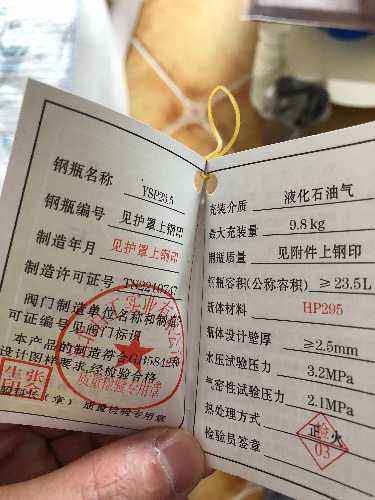 钢瓶名称 YSP23.5
钢瓶编号 见护罩上钢印
制造年月 见护罩上钢印
制造许可证号 TS2210747
阀门制造单位名称和制造
可证编号见阀门标识
本产品的制造符合GB5842和
设计图样要求,经检验合格
质量检验专用章
充装介质 液化石油气
最大充装量 9.8kg
钢瓶质量 见附件上钢印
钢瓶容积(公称容积) ≥23.5L
瓶体材料 HP295
瓶体设计壁厚 ≥2.5mm
水压试验压力 3.2MPa
气密性试验压力 2.1MPa
热处理方式 正火
检验员签章 检 03